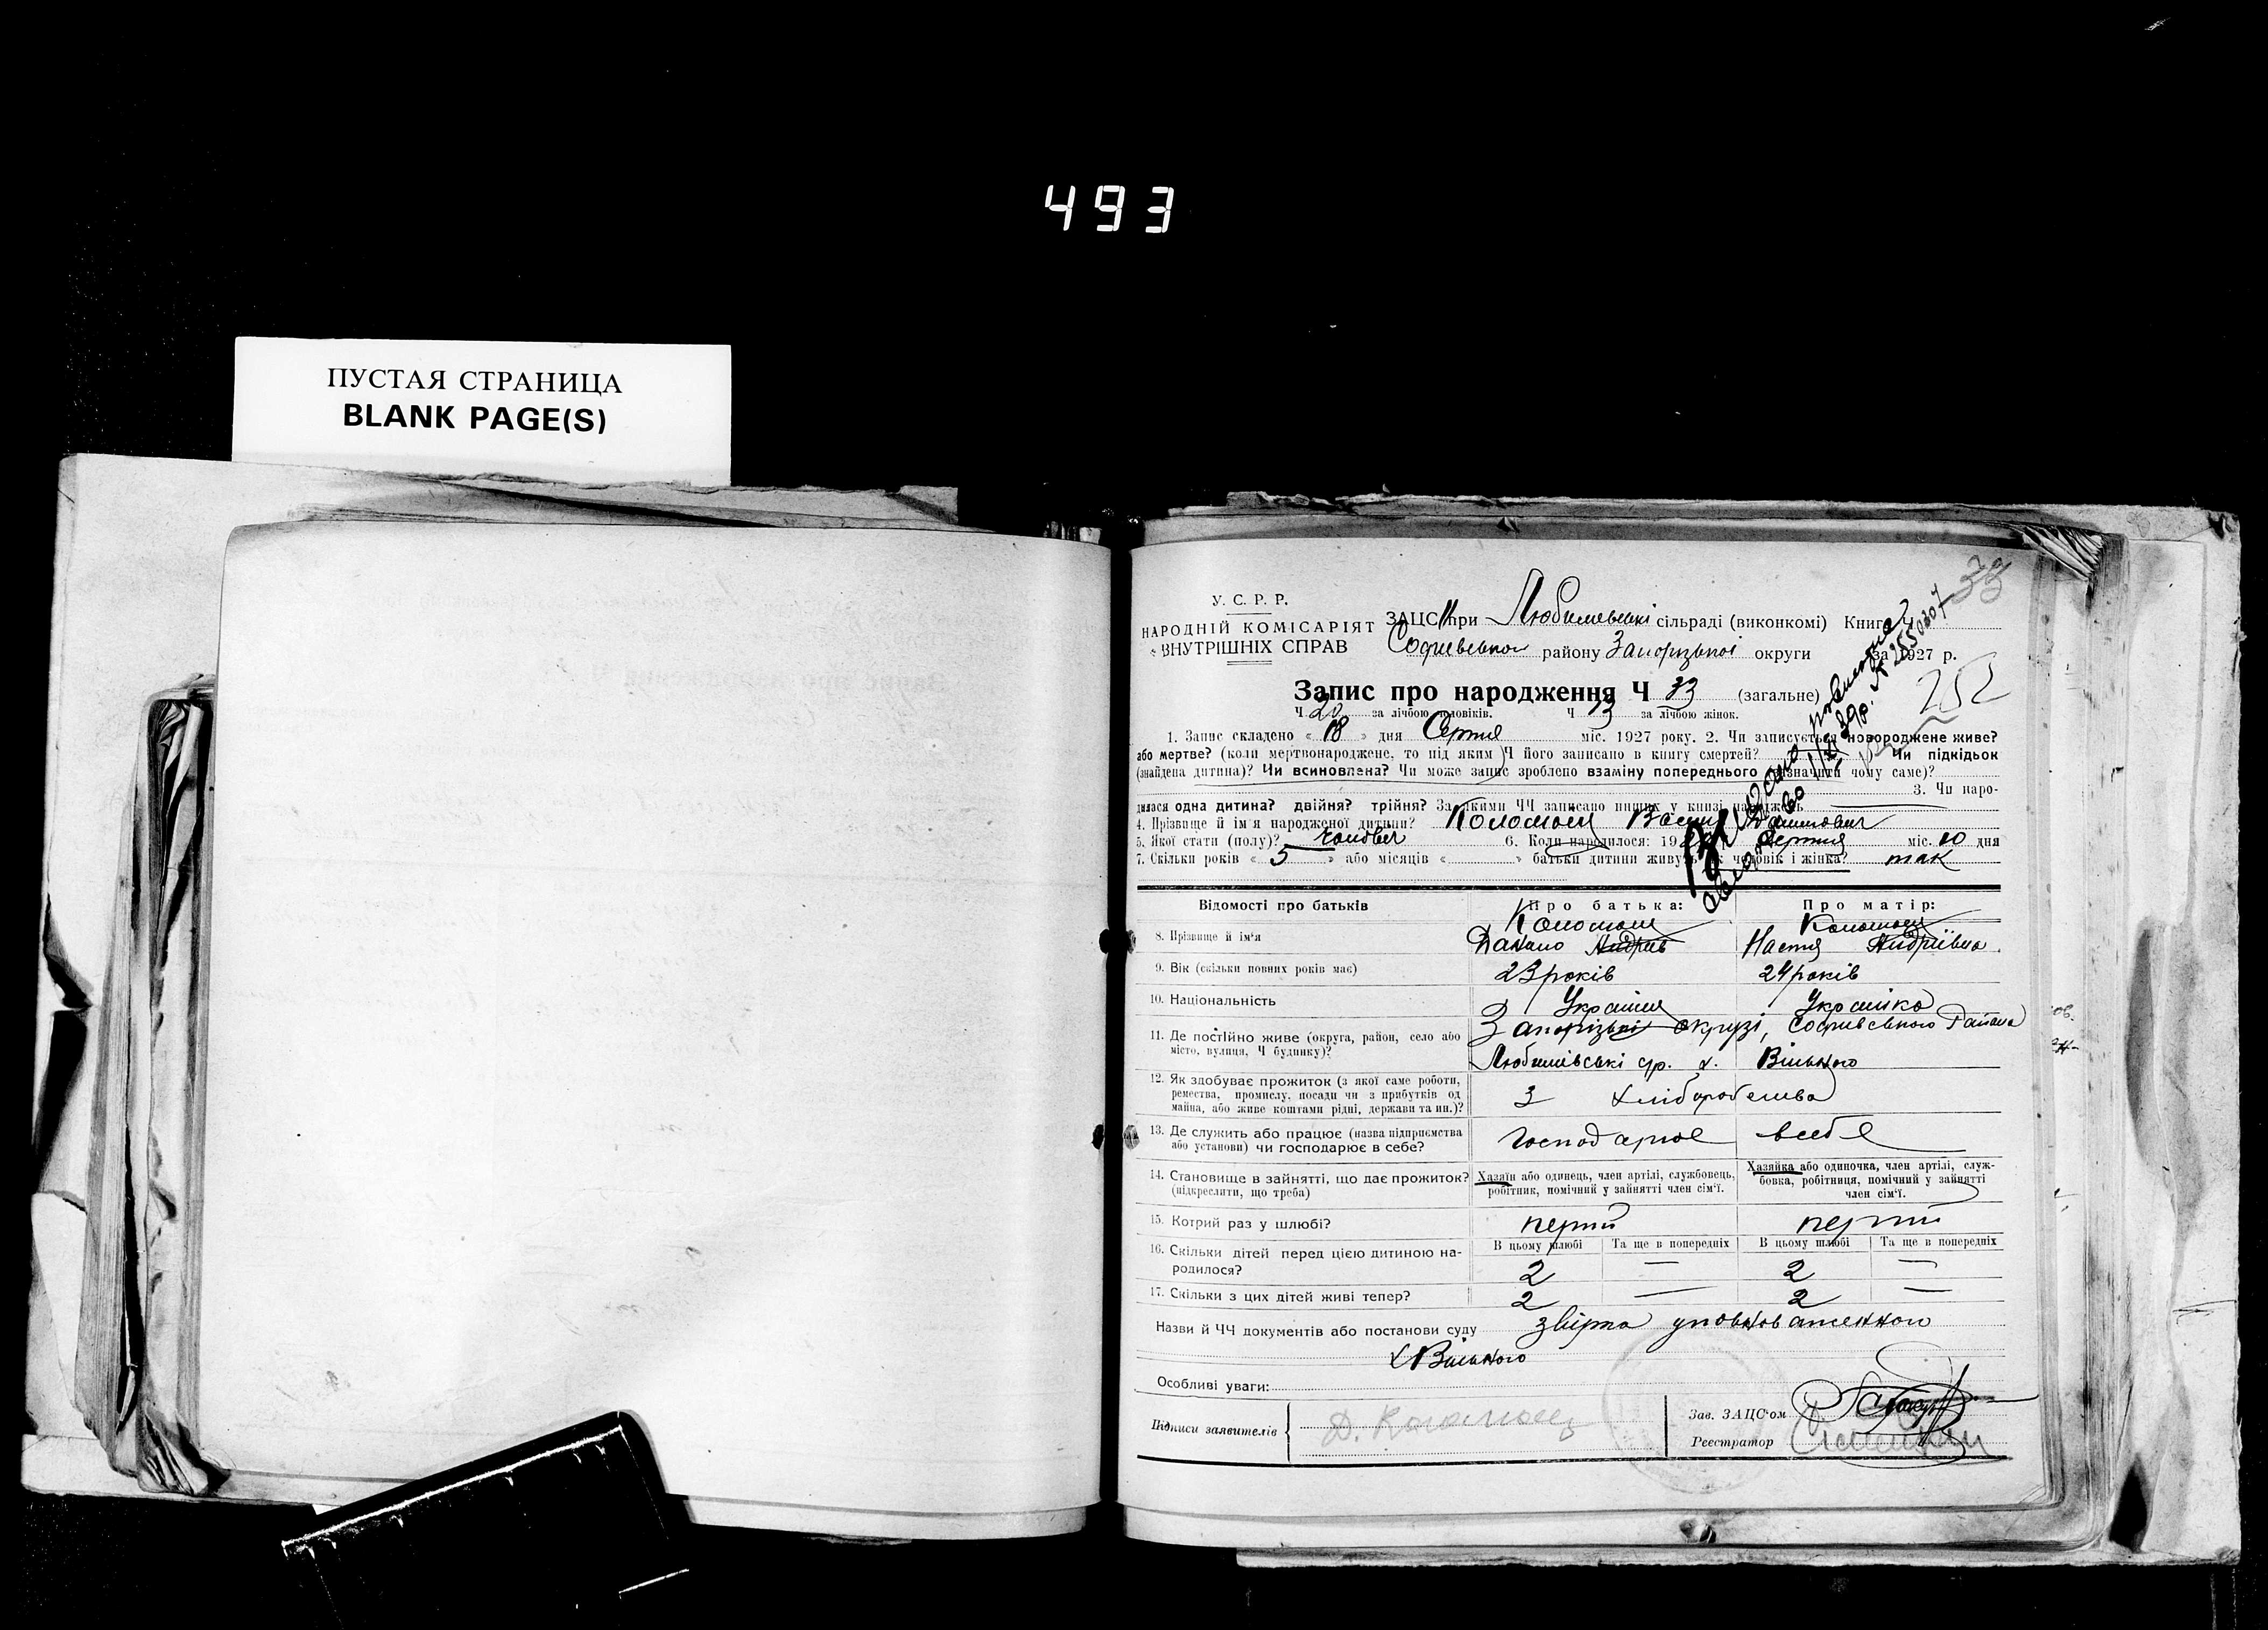 493
ПУСТАЯ СТРАНИЦА
BLANK PAGE(S)
33
У. С. Р. Р.
НАРОДНІЙ КОМІСАРІЯТ
ВНУТРІШНІХ СПРАВ
ЗАЦС при Любимівські сільраді (виконкомі) Книга
району Запорізької округи за 1927 р.
252
Запис про народження Ч 33 (загальне)
Ч 20 за лічбою чоловіків. Ч 13 за лічбою жінок.
1. Запис складено « 18 » дня Серпня міс. 1927 року. 2. Чи записується новороджене живе?
або мертве? (коли мертвонароджене, то під яким Ч його записано в книгу смертей? Чи підкідьок
(знайдена дитина)? Чи всиновлена? Чи може запис зроблено взаміну попереднього (зазначити чому саме)?
3. Чи наро-
дилася одна дитина? двійня? трійня? За якими ЧЧ записано инших у книзі народжень
4. Прізвище й ім'я народженої дитини? Коломоєць
5. Якої стати (полу)? 6. Коли народилося: 192 Серпня міс. 10 дня
7. Скільки років « 5 » або місяців « » батьки дитини живуть як чоловік і жінка? так
Відомості про батьків Про батька: Про матір:
Коломоєць Коломоєць
8. Прізвище й ім'я Данило Андрів Настя Андріївна
9. Вік (скільки повних років має) 23 років 24 років
10. Національність Українець Українка
11. Де постійно живе (округа, район, село або місто, вулиця, Ч будинку)? Запорізькі окрузі, Софиевського Района
Любимівські с/р. х. Вільного
12. Як здобуває прожиток (з якої саме роботи, ремества, промислу, посади чи з прибутків од майна, або живе коштами рідні, держави та ин.)? З хліборобства
13. Де служить або працює (назва підприємства або установи) чи господарює в себе? господарює в себе
14. Становище в зайнятті, що дає прожиток? (підкреслити, що треба) Хазяїн або одинець, член артілі, службовець, робітник, помічний у зайнятті член сім'ї. Хазяйка або одиночка, член артілі, служ-бовка, робітниця, помічний у зайнятті член сім'ї.
15. Котрий раз у шлюбі? перши перши
В цьому шлюбі Та ще в попередніх В цьому шлюбі Та ще в попередніх
16. Скільки дітей перед цією дитиною на-родилося? 2 — 2 —
17. Скільки з цих дітей живі тепер? 2 — 2 —
Назви й ЧЧ документів або постанови суду звірка уповноваженного
х Вільного
Особливі уваги:
Підписи заявителів Д. Коломоєць
Зав. ЗАЦС'ом
Реестратор